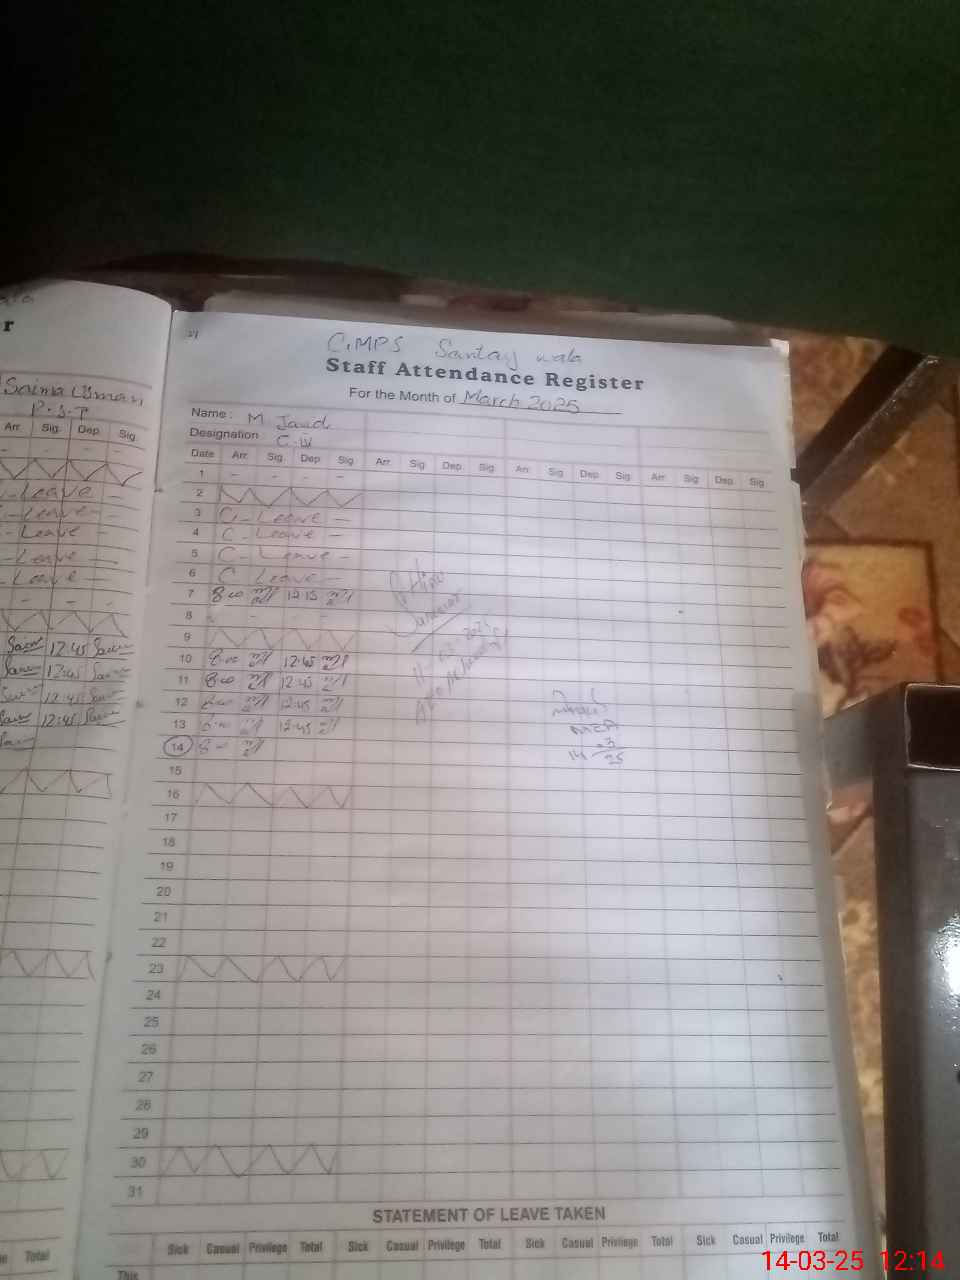 r
Saima Usman
P.S.T
Arr. Sig. Dep. Sig.
- Leave -
- Leave -
- Leave
- Leave
- Leave
12:45
12:45
12:45
12:45
Total
G.MPS Santay wala
Staff Attendance Register
For the Month of March 2025
Name : M Javid
Designation C.IV
Date Arr. Sig. Dep. Sig. Arr. Sig. Dep. Sig. Arr. Sig. Dep. Sig. Arr. Sig. Dep. Sig.
1 - - - -
2
3 C - Leave -
4 C - Leave -
5 C - Leave -
6 C Leave -
7 8:00 12:15
8 - - -
9
10 8:00 12:45
11 8:00 12:45
12 8:00 12:45
13 8:00 12:45
14 8:00
11-03-2025
MEA
14-3-25
15
16
17
18
19
20
21
22
23
24
25
26
27
28
29
30
31
STATEMENT OF LEAVE TAKEN
Sick Casual Privilege Total Sick Casual Privilege Total Sick Casual Privilege Total Sick Casual Privilege Total
This
14-03-25 12:14